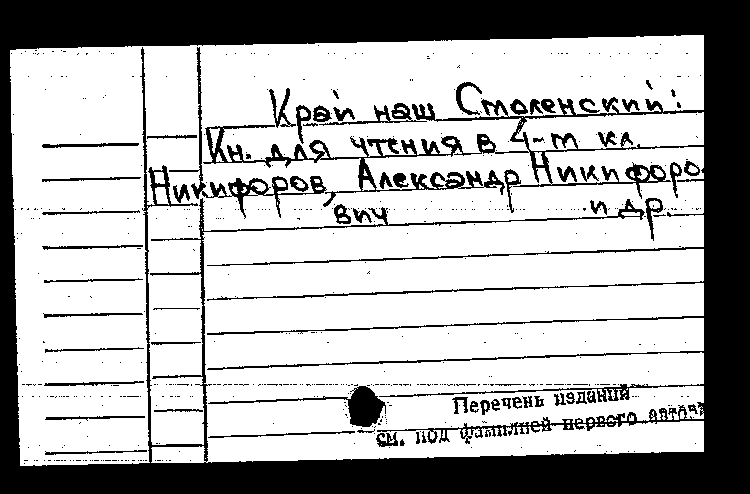 Край наш Смоленский:
Кн. для чтения в 4-м кл.
Никифоров, Александр Никифоро-
вич и др.
Перечень изданий
см. под фамилией первого автора